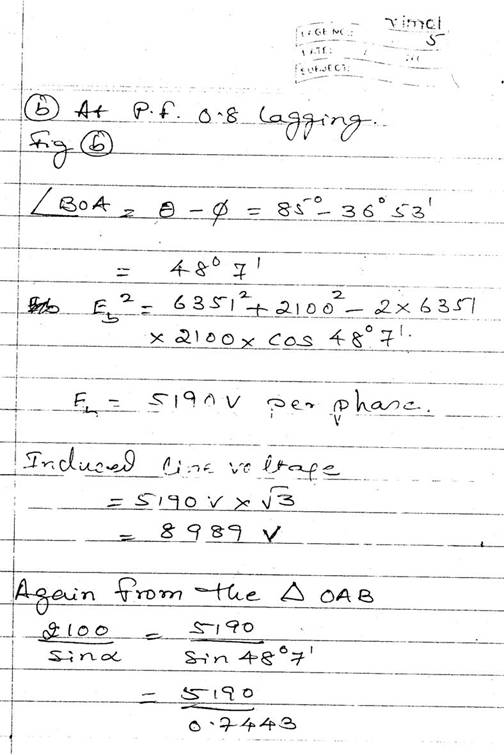 vimal
5
PAGE NO.:
DATE: /
SUBJECT:
(b) At P.f. 0.8 lagging.
Fig (b)
∠BOA = θ - φ = 85° - 36° 53'
= 48° 7'
E_b² = 6351² + 2100² - 2 × 6351
× 2100 × cos 48° 7'.
E_b = 5190 V per phase.
Induced line voltage
= 5190 V × √3
= 8989 V
Again from the Δ OAB
2100/sinα = 5190/sin 48° 7'
= 5190/0.7443